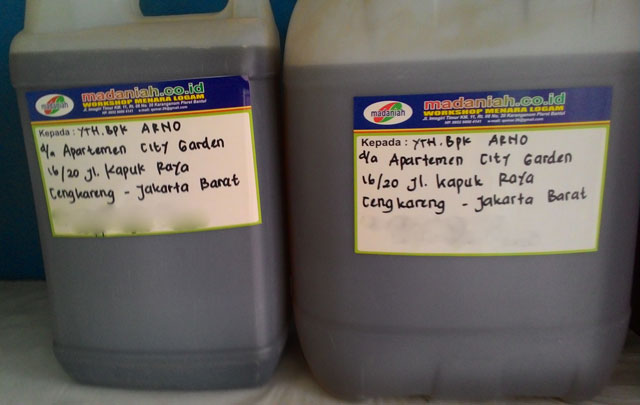 madaniah.co.id
WORKSHOP MENARA LOGAM
madaniah
Kepada : YTH. BPK ARNO
d/a Apartemen City Garden
16/20 Jl. Kapuk Raya
Cengkareng - Jakarta Barat
madaniah.co.id
WORKSHOP MENARA LOGAM
madaniah
Kepada : YTH. BPK ARNO
d/a Apartemen City Garden
16/20 Jl. Kapuk Raya
Cengkareng - Jakarta Barat